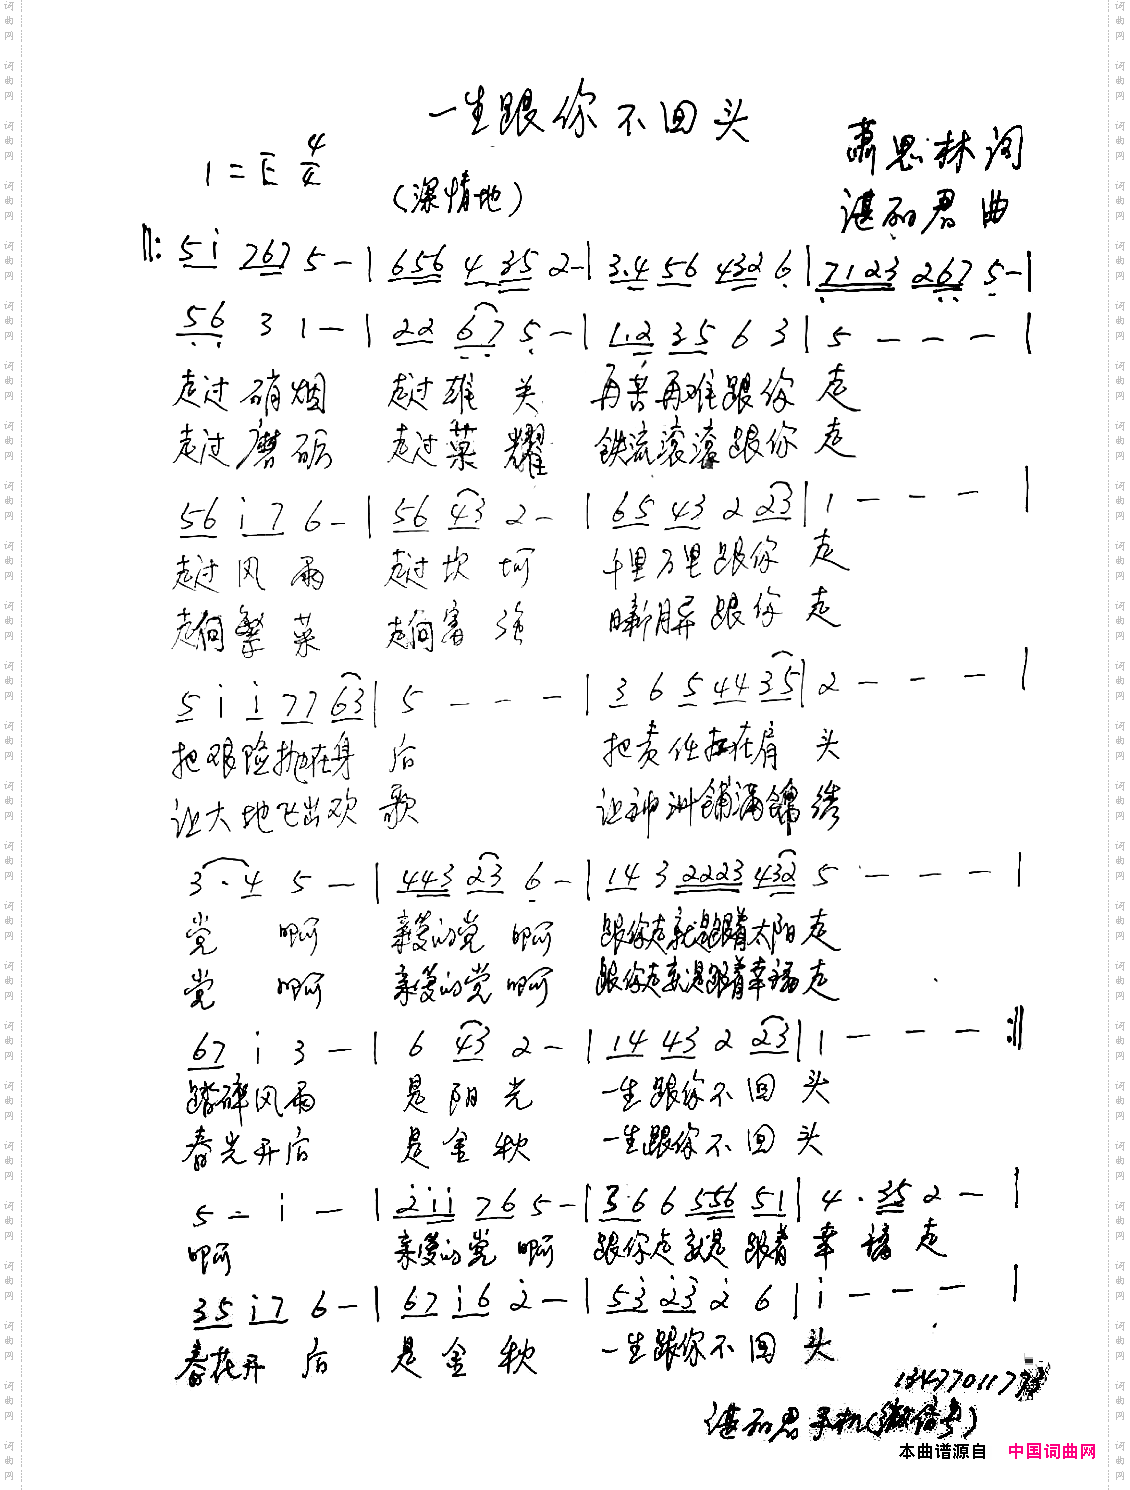 一生跟你不回头
1=E 4/4
（深情地）
萧思林词
湛 君 曲
‖: 5 i 7 6 7 5 - | 6 5 6 4 3 5 2 - | 3. 4 5 6 4 3 2 6 | 7 1 2 3 2 6 7 5 - |
5 6 3 1 - | 2 2 6 7 5 - | 1. 2 3 5 6 3 | 5 - - - |
走过硝烟 走过雄关 再苦再难跟你走
走过磨砺 走过荣耀 铁流滚滚跟你走
5 6 i 7 6 - | 5 6 4 3 2 - | 6 5 4 3 2 2 3 | 1 - - - |
走过风雨 走过坎坷 千里万里跟你走
走向繁荣 走向富强 跟你走
5 i i 7 7 6 3 | 5 - - - | 3 6 5 4 4 3 5 | 2 - - - |
把艰险抛在身后 把责任扛在肩头
让大地飞出欢歌 让神洲铺满锦绣
3 . 4 5 - | 4 4 3 2 3 6 - | 1 4 3 2 2 2 3 4 3 2 5 - - - |
党 啊 亲爱的党啊 跟你走就是跟着太阳走
党 啊 亲爱的党啊 跟你走就是跟着幸福走
6 7 i 3 - | 6 4 3 2 - | 1 4 4 3 2 2 3 | 1 - - - :‖
踏碎风雨 是阳光 一生跟你不回头
春光开后 是金秋 一生跟你不回头
5 - i - | 2 i i 7 6 5 - | 3. 6 6 5 5 6 5 1 | 4 . 3 5 2 - |
啊 亲爱的党啊 跟你走就是跟着幸福走
3 5 i 7 6 - | 6 7 i 6 2 - | 5 3 2 3 2 6 | i - - - |
春花开后 是金秋 一生跟你不回头
湛 君手机(微信号)
本曲谱源自 中国词曲网